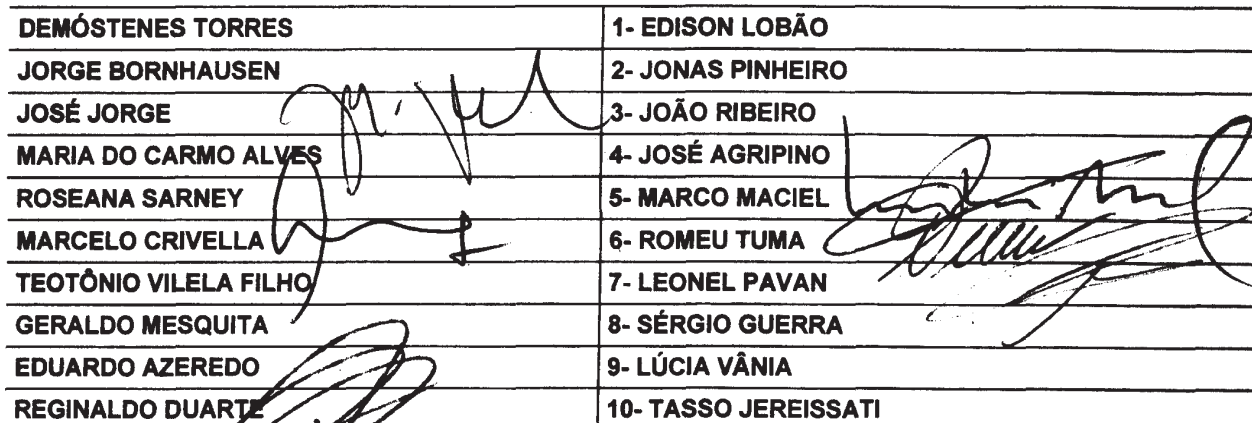 DEMÓSTENES TORRES 1- EDISON LOBÃO
JORGE BORNHAUSEN 2- JONAS PINHEIRO
JOSÉ JORGE 3- JOÃO RIBEIRO
MARIA DO CARMO ALVES 4- JOSÉ AGRIPINO
ROSEANA SARNEY 5- MARCO MACIEL
MARCELO CRIVELLA 6- ROMEU TUMA
TEOTÔNIO VILELA FILHO 7- LEONEL PAVAN
GERALDO MESQUITA 8- SÉRGIO GUERRA
EDUARDO AZEREDO 9- LÚCIA VÂNIA
REGINALDO DUARTE 10- TASSO JEREISSATI